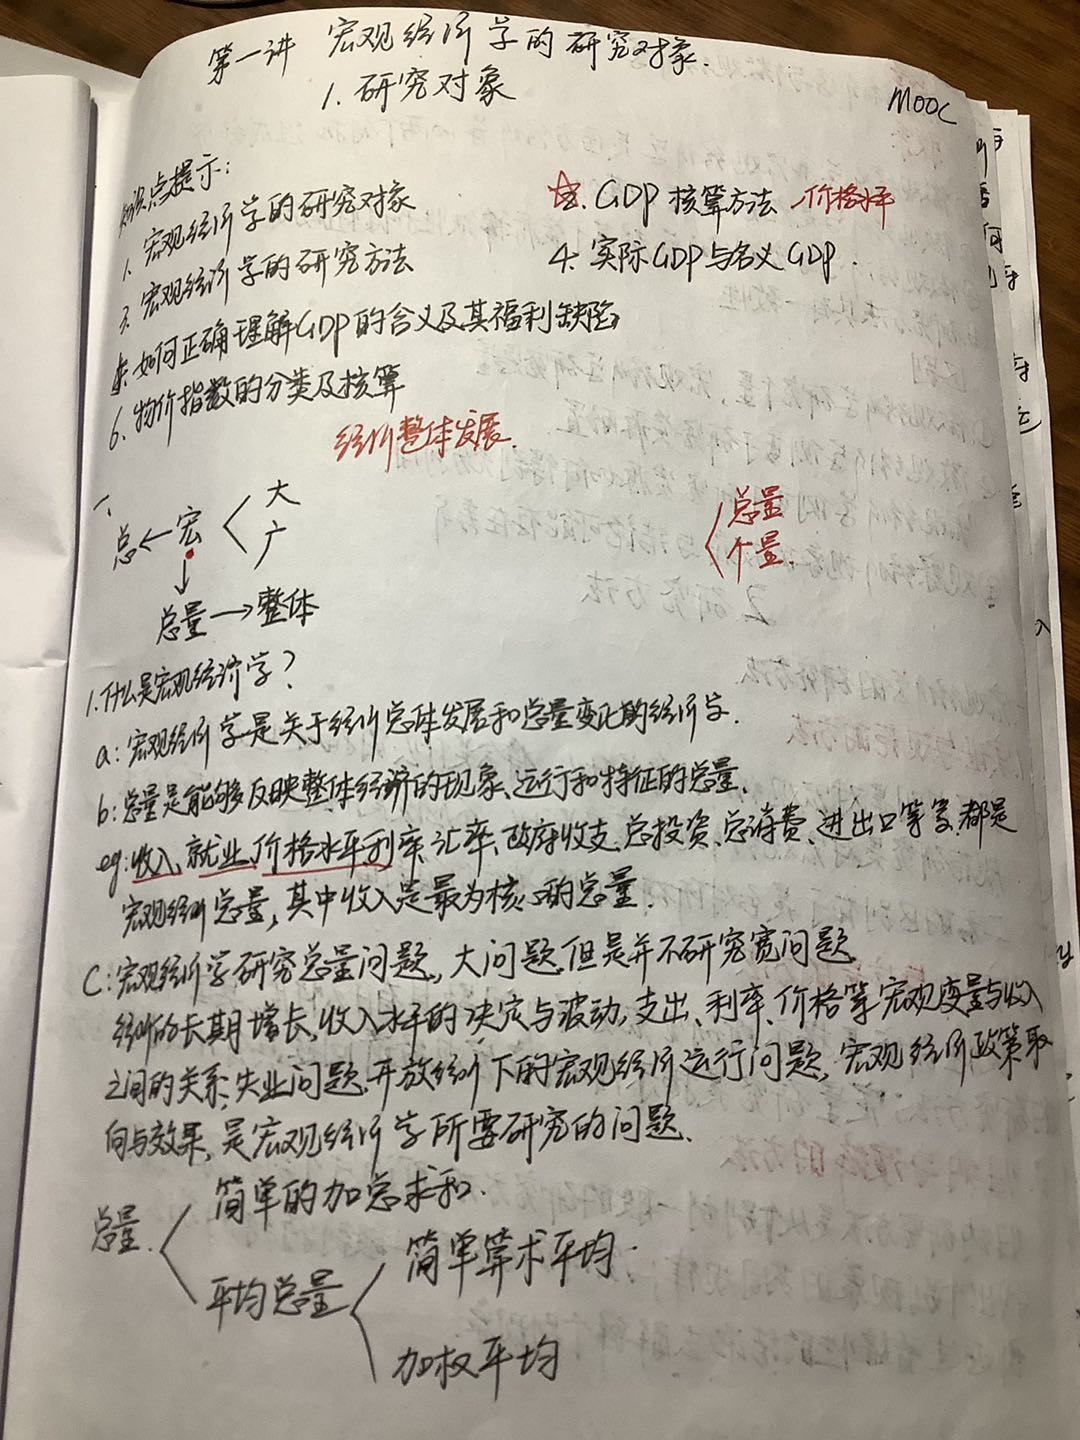 第一讲 宏观经济学的研究对象.
1. 研究对象
MOOC
知识点提示:
1. 宏观经济学的研究对象
3. 宏观经济学的研究方法
☆. GDP 核算方法 价格水平
4. 实际GDP与名义GDP.
5. 如何正确理解GDP的含义及其福利缺陷
6. 物价指数的分类及核算
经济整体发展.
一、
总←宏
大
广
总量→整体
总量
个量.
1.什么是宏观经济学?
a: 宏观经济学是关于经济总体发展和总量变化的经济学.
b: 总量是能够反映整体经济的现象、运行和特征的总量.
eg: 收入、就业、价格水平、利率、汇率、政府收支、总投资、总消费、进出口等等,都是
宏观经济总量, 其中收入是最为核心的总量.
C: 宏观经济学研究总量问题, 大问题.但是并不研究宽问题
经济的长期增长, 收入水平的决定与波动, 支出、利率、价格等宏观变量与收入
之间的关系、失业问题.开放经济下的宏观经济运行问题, 宏观经济政策取
向与效果, 是宏观经济学所要研究的问题.
总量.
简单的加总求和.
平均总量
简单算术平均.
加权平均
2.研究方法